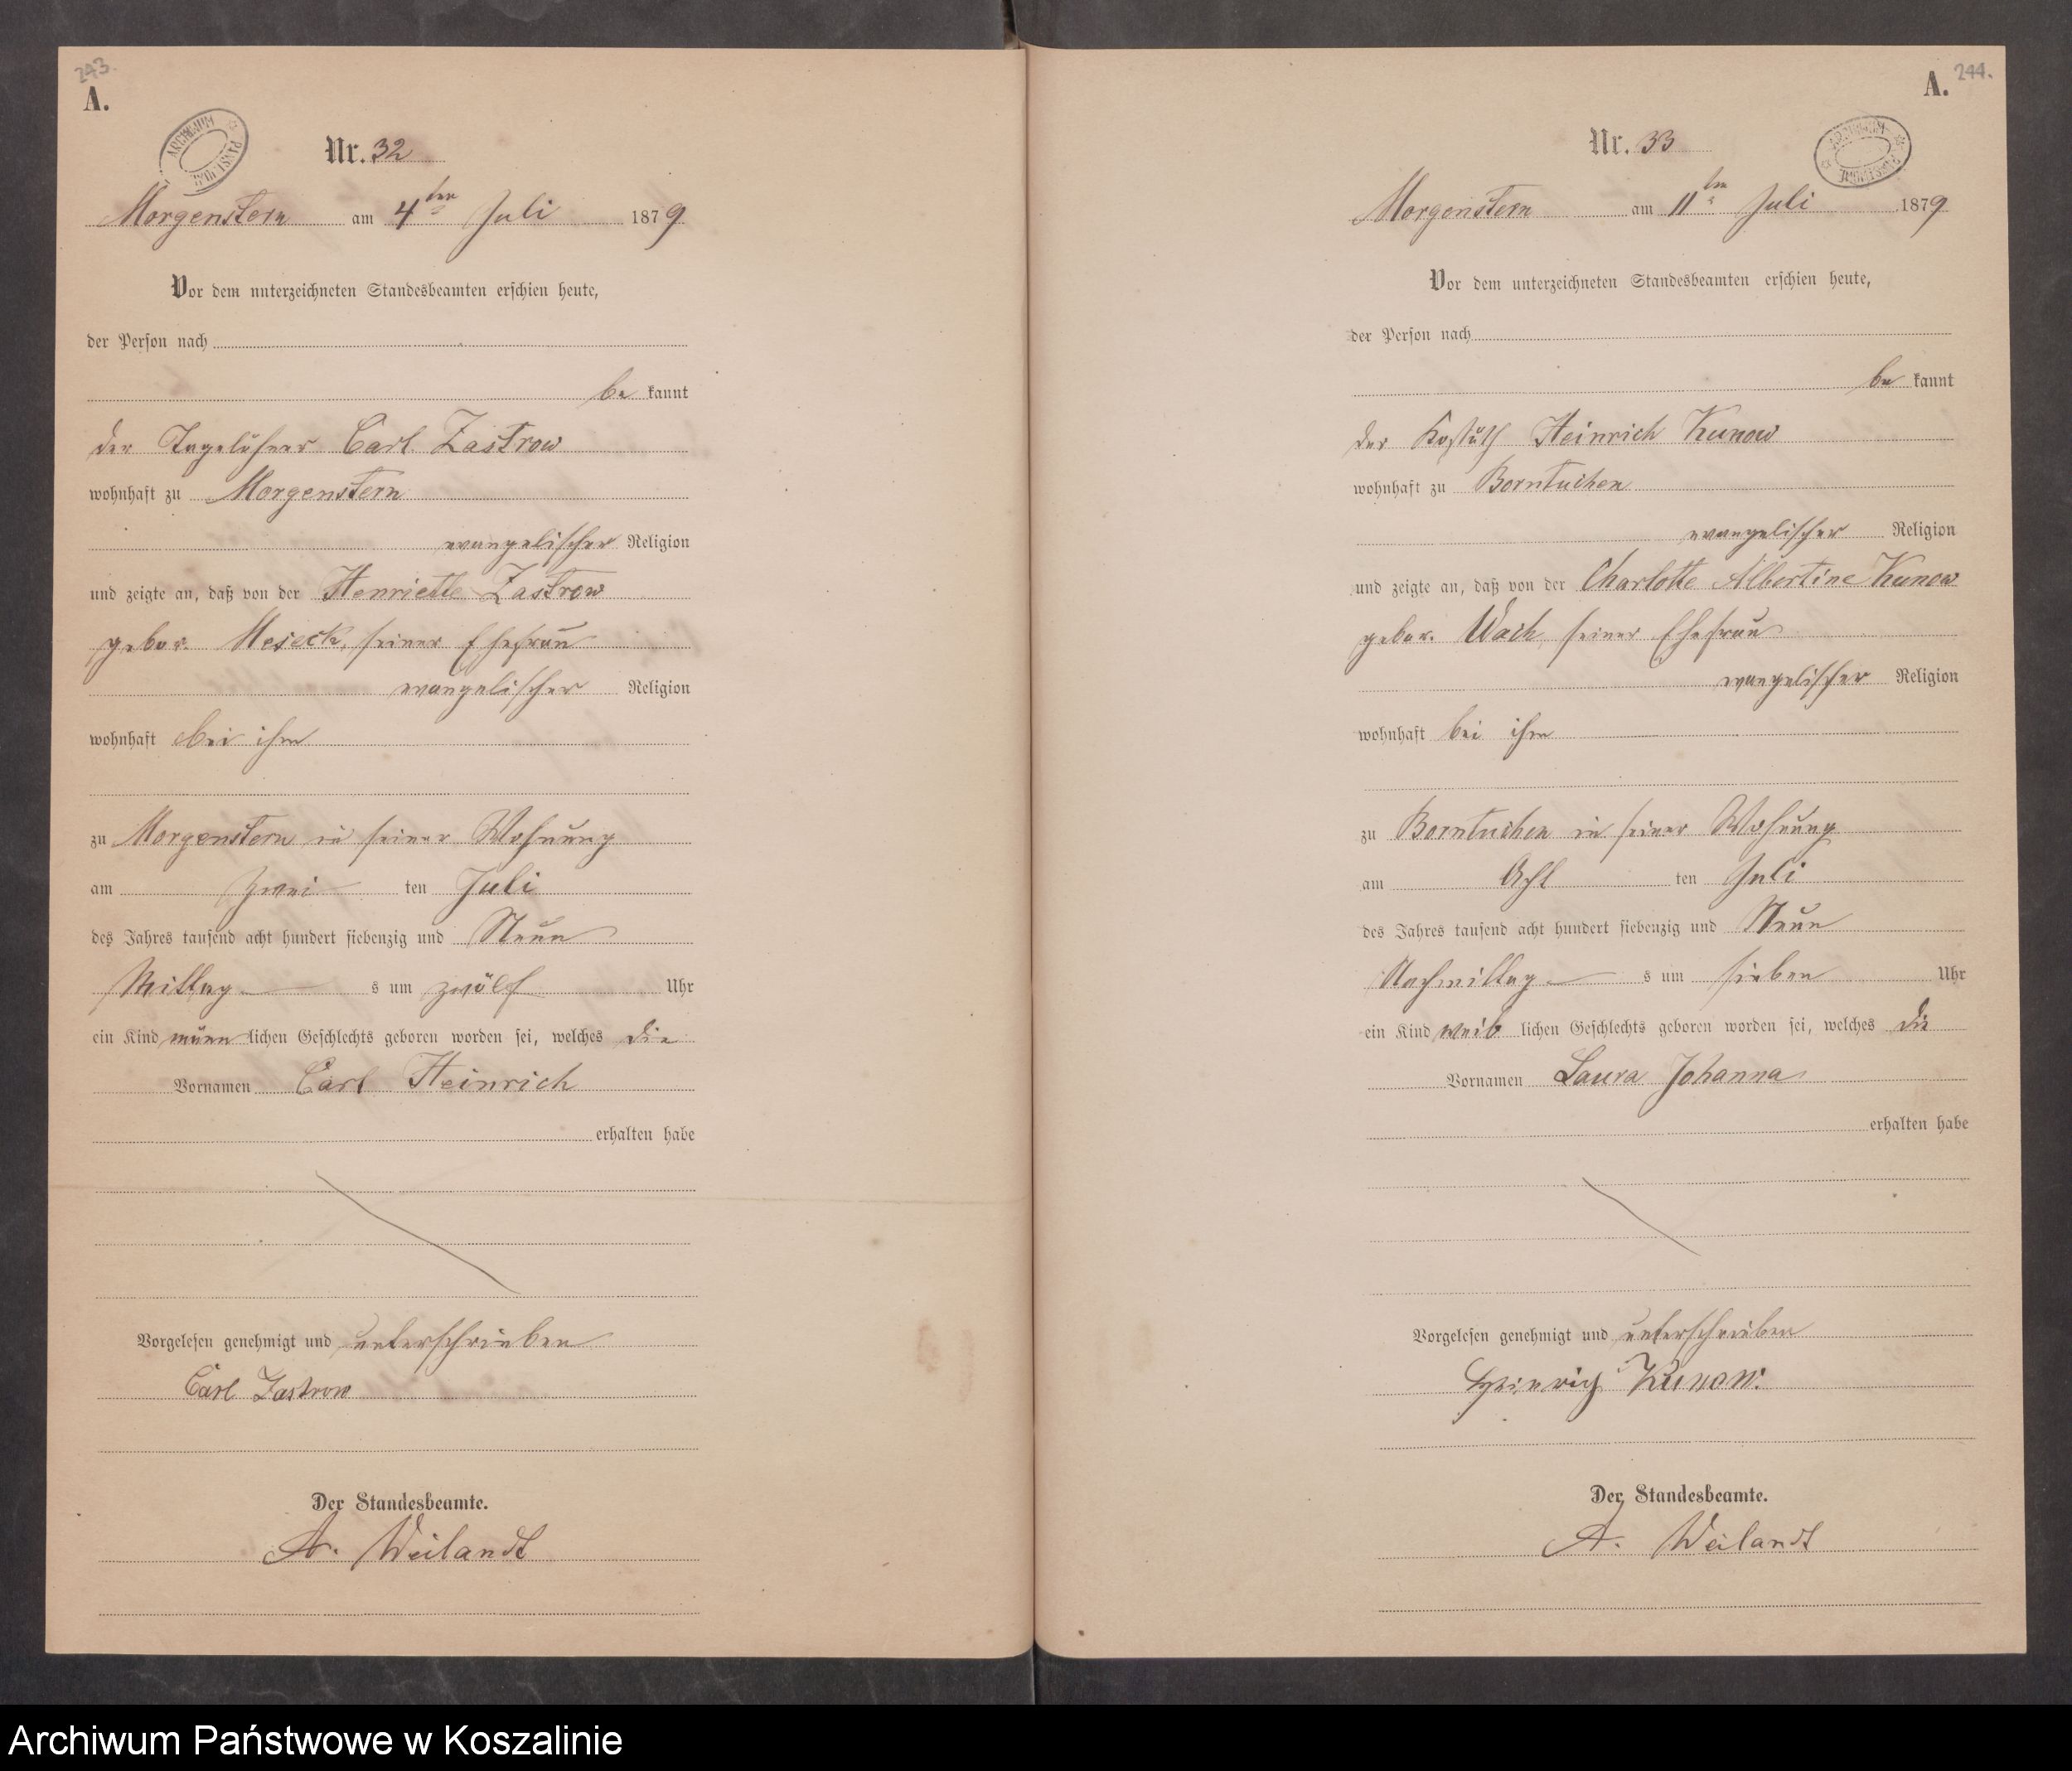 243.
A.
ARCHIWUM PAŃSTWOWE
Nr. 32
Morgenstern am 4ten Juli 1879
Vor dem unterzeichneten Standesbeamten erschien heute,
der Person nach
be kannt
der Tagelöhner Carl Zastrow
wohnhaft zu Morgenstern
evangelischer Religion
und zeigte an, daß von der Henriette Zastrow
gebor. Meseck, seiner Ehefrau
evangelischer Religion
wohnhaft bei ihm
zu Morgenstern in seiner Wohnung
am zwei ten Juli
des Jahres tausend acht hundert siebenzig und Neun
Mittag s um zwölf Uhr
ein Kind männ lichen Geschlechts geboren worden sei, welches die
Vornamen Carl Heinrich
erhalten habe
Vorgelesen genehmigt und unterschrieben
Carl Zastrow
Der Standesbeamte.
A. Weilandt
A. 244.
ARCHIWUM PAŃSTWOWE
Nr. 33
Morgenstern am 11ten Juli 1879
Vor dem unterzeichneten Standesbeamten erschien heute,
der Person nach
be kannt
der Heinrich Kunow
wohnhaft zu Borntuchen
evangelischer Religion
und zeigte an, daß von der Charlotte Albertine Kunow
gebor. Wach, seiner Ehefrau
evangelischer Religion
wohnhaft bei ihm
zu Borntuchen in seiner Wohnung
am Acht ten Juli
des Jahres tausend acht hundert siebenzig und Neun
Nachmittag s um sieben Uhr
ein Kind weib lichen Geschlechts geboren worden sei, welches die
Vornamen Laura Johanna
erhalten habe
Vorgelesen genehmigt und unterschrieben
Heinrich Kunow.
Der Standesbeamte.
A. Weilandt
Archiwum Państwowe w Koszalinie